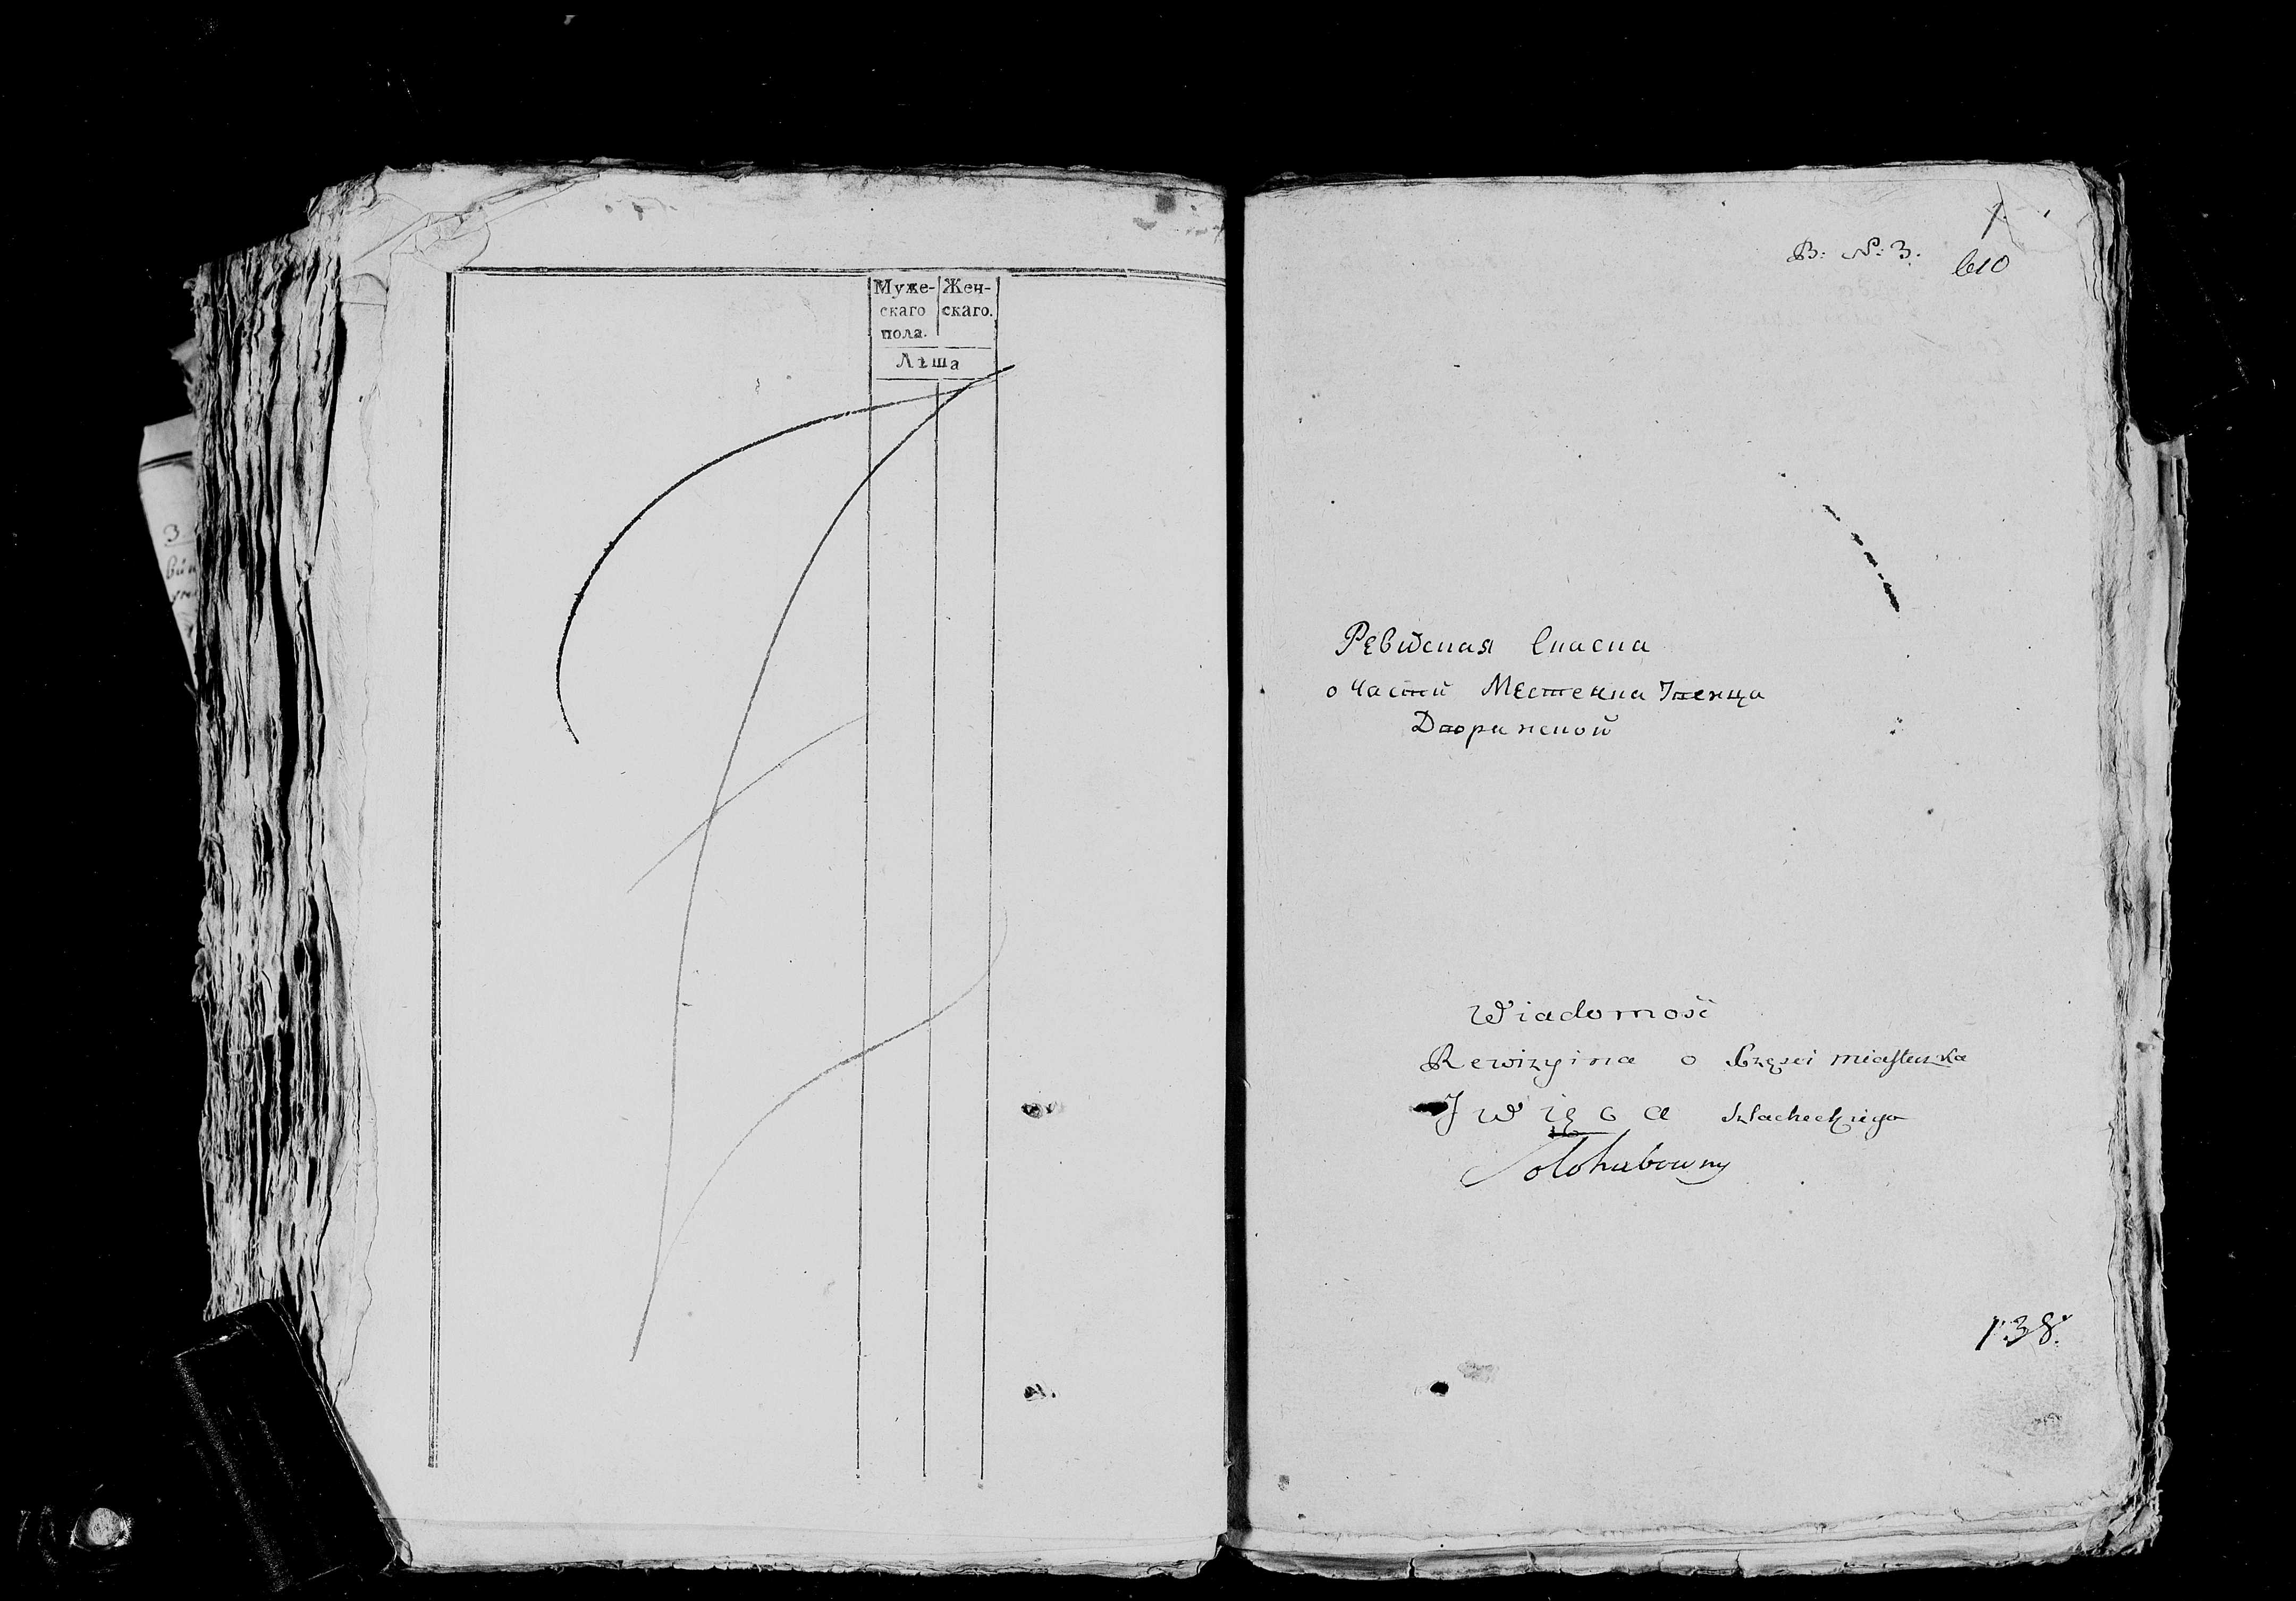 Муже- Жен-
скаго скаго.
пола.
Лѣта
В: №: 3.
610
Ревизская Сказка
о Части Местечка Ивенца
Дворянской
Wiadomość
Rewizyina o Części miasteczka
Iwięca szlacheckiego
Sołohubowny
138.